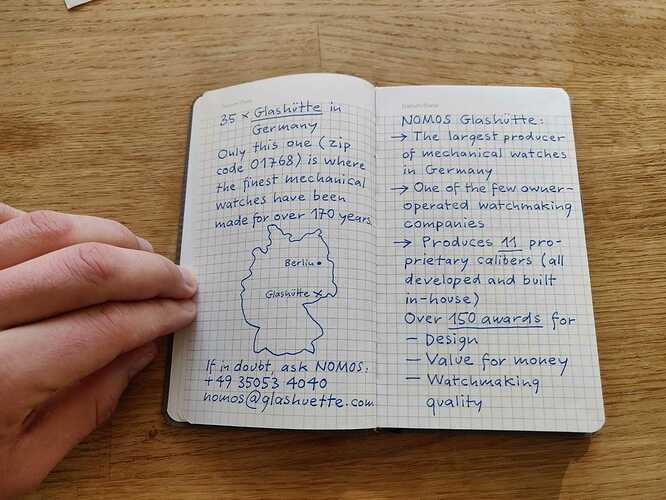 Datum/Date
35 x Glashütte in
Germany
Only this one (zip
code 01768) is where
the finest mechanical
watches have been
made for over 170 years.
Berlin
Glashütte
If in doubt, ask NOMOS:
+49 35053 4040
nomos@glashuette.com
Datum/Date
NOMOS Glashütte:
→ The largest producer
of mechanical watches
in Germany
→ One of the few owner-
operated watchmaking
companies
→ Produces 11 pro-
prietary calibers (all
developed and built
in-house)
Over 150 awards for
– Design
– Value for money
– Watchmaking
quality